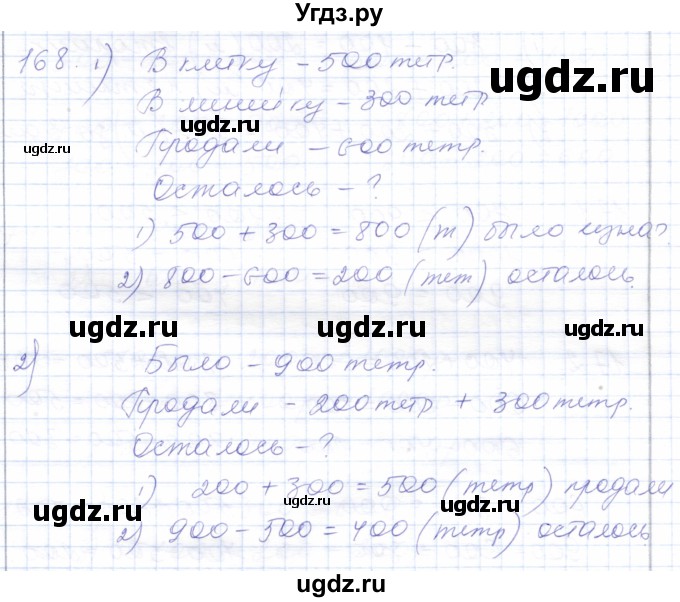 Угдз.ру
168. 1) В клетку – 500 тетр.
ugdz.ru
В линейку – 300 тетр
ugdz.ru
ugdz.ru
Продали – 600 тетр.
Осталось – ?
1) 500 + 300 = 800 (т) было
2) 800 – 600 = 200 (тет) осталось.
ugdz.ru ugdz.ru ugdz.ru
2) Было – 900 тетр.
Продали – 200 тетр + 300 тетр.
ugdz.ru
Осталось – ?
1) 200 + 300 = 500 (тетр) продали
ugdz.ru ugdz.ru ugdz.ru
2) 900 – 500 = 400 (тетр) осталось
ugdz.ru